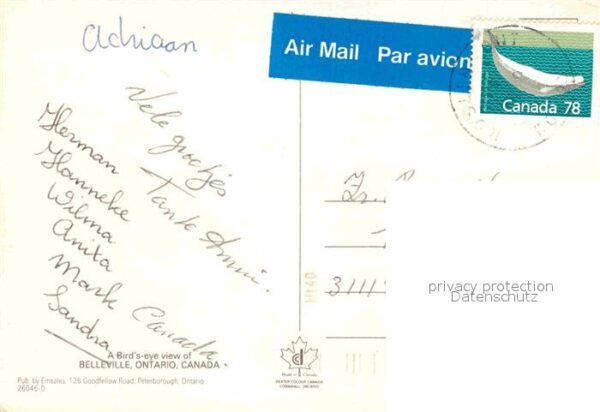 Adriaan
Air Mail Par avion
Canada 78
Vele groetjes
Tante Anni.
Canada.
Herman
Hanneke
Wilma
Anita
Mark
Sandra
3111
privacy protection
Datenschutz
A Bird's-eye view of
BELLEVILLE, ONTARIO, CANADA
Pub. by Emszies, 126 Goodfellow Road, Peterborough, Ontario
26046-D
Made in Canada
DEXTER COLOUR CANADA
CORNWALL, ONTARIO